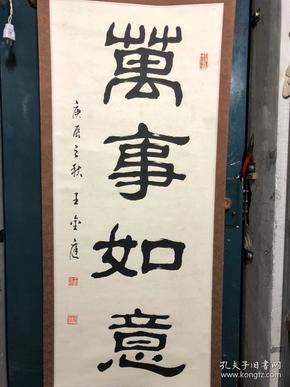 萬事如意
庚辰之秋 王金庭
孔夫子旧书网